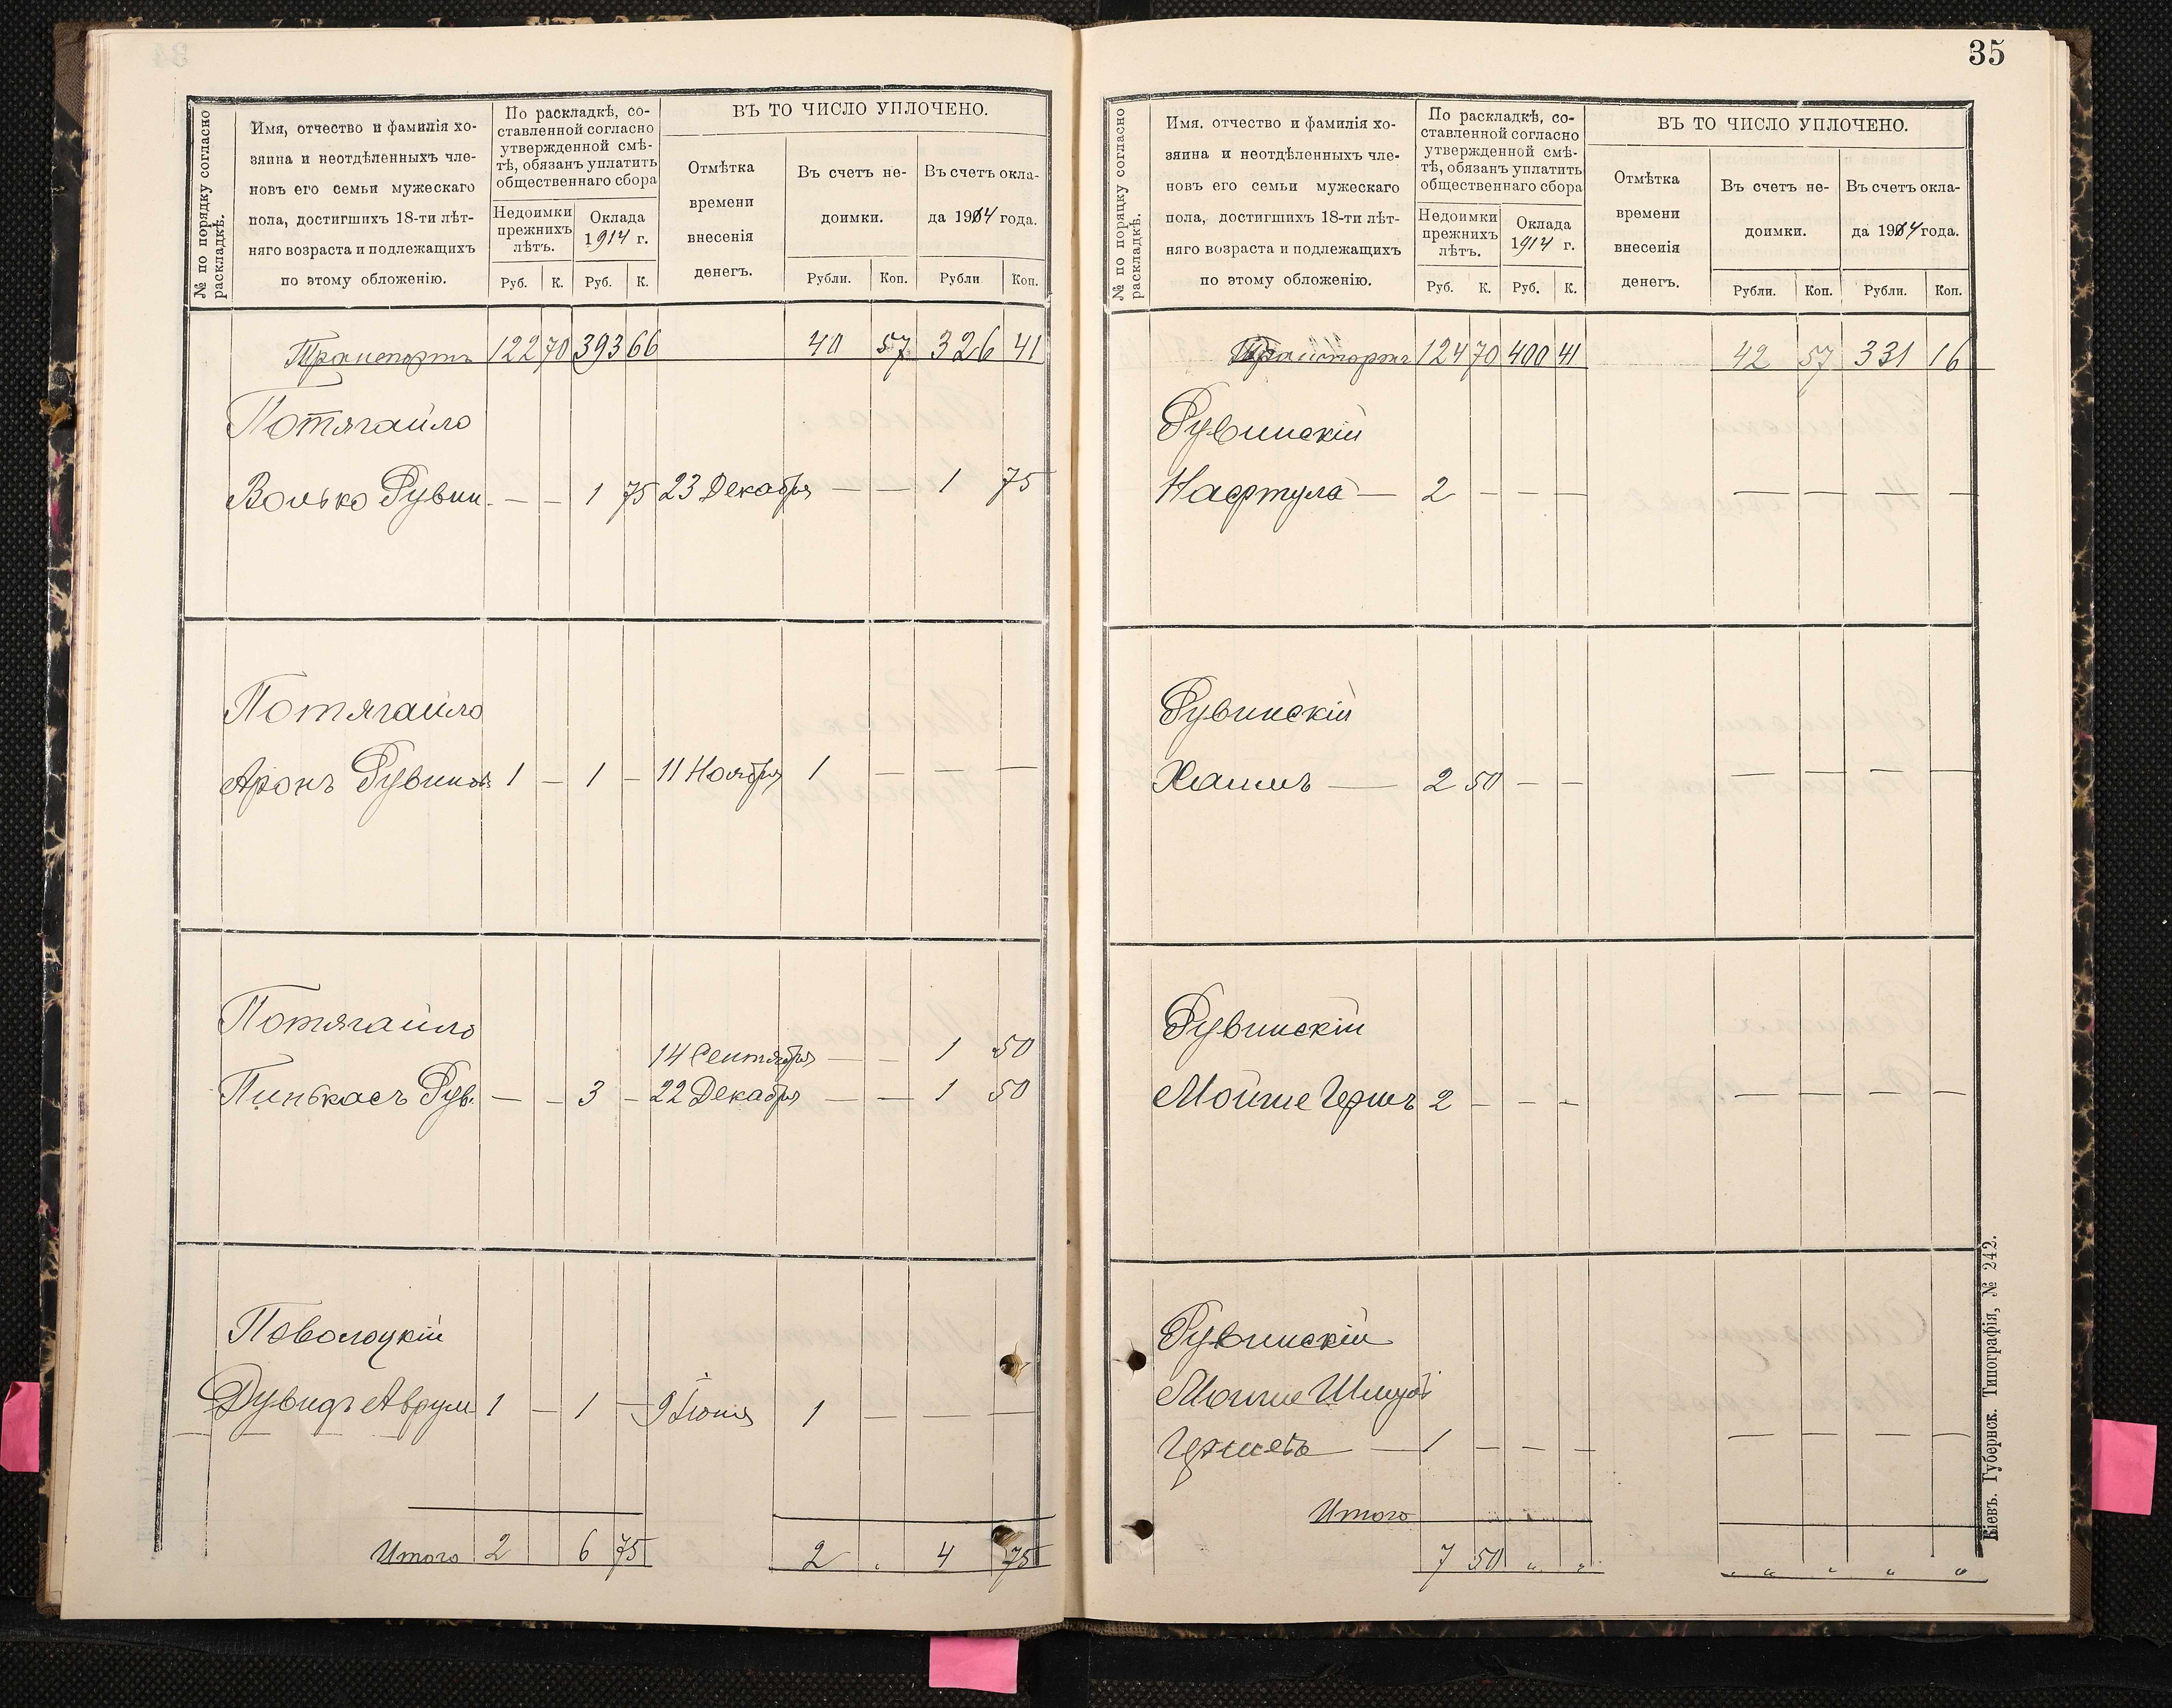 № по порядку согласно
раскладкѣ.
Имя, отчество и фамилія хо-
зяина и неотдѣленныхъ чле-
новъ его семьи мужескаго
пола, достигшихъ 18-ти лѣт-
няго возраста и подлежащихъ
по этому обложенію.
По раскладкѣ, со-
ставленной согласно
утвержденной смѣ-
тѣ, обязанъ уплатить
общественнаго сбора
Недоимки
прежнихъ
лѣтъ.
Оклада
1914 г.
Руб. К. Руб. К.
ВЪ ТО ЧИСЛО УПЛОЧЕНО.
Отмѣтка
времени
внесенія
денегъ.
Въ счетъ не-
доимки.
Въ счетъ окла-
да 1914 года.
Рубли. Коп. Рубли Коп.
Транспортъ 122 70 393 66 40 57 326 41
Потягайло
Волько Рувин. — — 1 75 23 Декабря — — 1 75
Потягайло
Аронъ Рувиновъ 1 — 1 — 11 Ноября 1 — — —
Потягайло
14 Сентября — — 1 50
Пинькасъ Рув. — — 3 — 22 Декабря — — 1 50
Поволоцкій
Дувидъ Аврум 1 — 1 — 9 Іюня 1 — — —
Итого 2 6 75 2 . 4 75
35
№ по порядку согласно
раскладкѣ.
Имя. отчество и фамилія хо-
зяина и неотдѣленныхъ чле-
новъ его семьи мужескаго
пола, достигшихъ 18-ти лѣт-
няго возраста и подлежащихъ
по этому обложенію.
По раскладкѣ, со-
ставленной согласно
утвержденной смѣ-
тѣ, обязанъ уплатить
общественнаго сбора
Недоимки
прежнихъ
лѣтъ.
Оклада
1914 г.
Руб. К. Руб. К.
ВЪ ТО ЧИСЛО УПЛОЧЕНО.
Отмѣтка
времени
внесенія
денегъ.
Въ счетъ не-
доимки.
Въ счетъ окла-
да 1914 года.
Рубли. Коп. Рубли. Коп.
Транспортъ 124 70 400 41 42 57 331 16
Рувинскій
Нафтула — 2 — — — — — — —
Рувинскій
Хаимъ — 2 50 — — — — — —
Рувинскій
Мойше Гершъ 2 — — — — — — —
Рувинскій
Мойше Шмуль
— 1 — — — — — — —
Итого
7 50 „ „ „ „ „ „
Кіевъ. Губернск. Типографія, № 242.